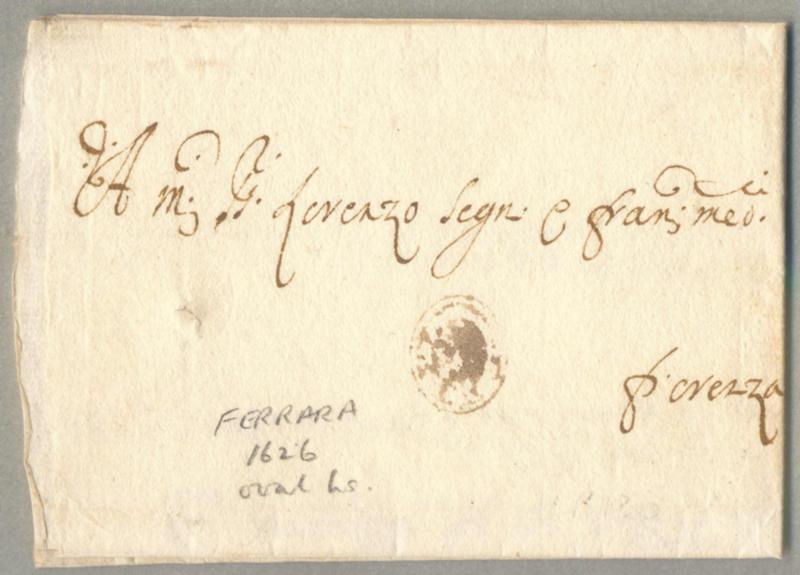 A m. SS. Lorenzo Segni e Fran: med.ci
fiorenza
FERRARA
1626
oval hs.